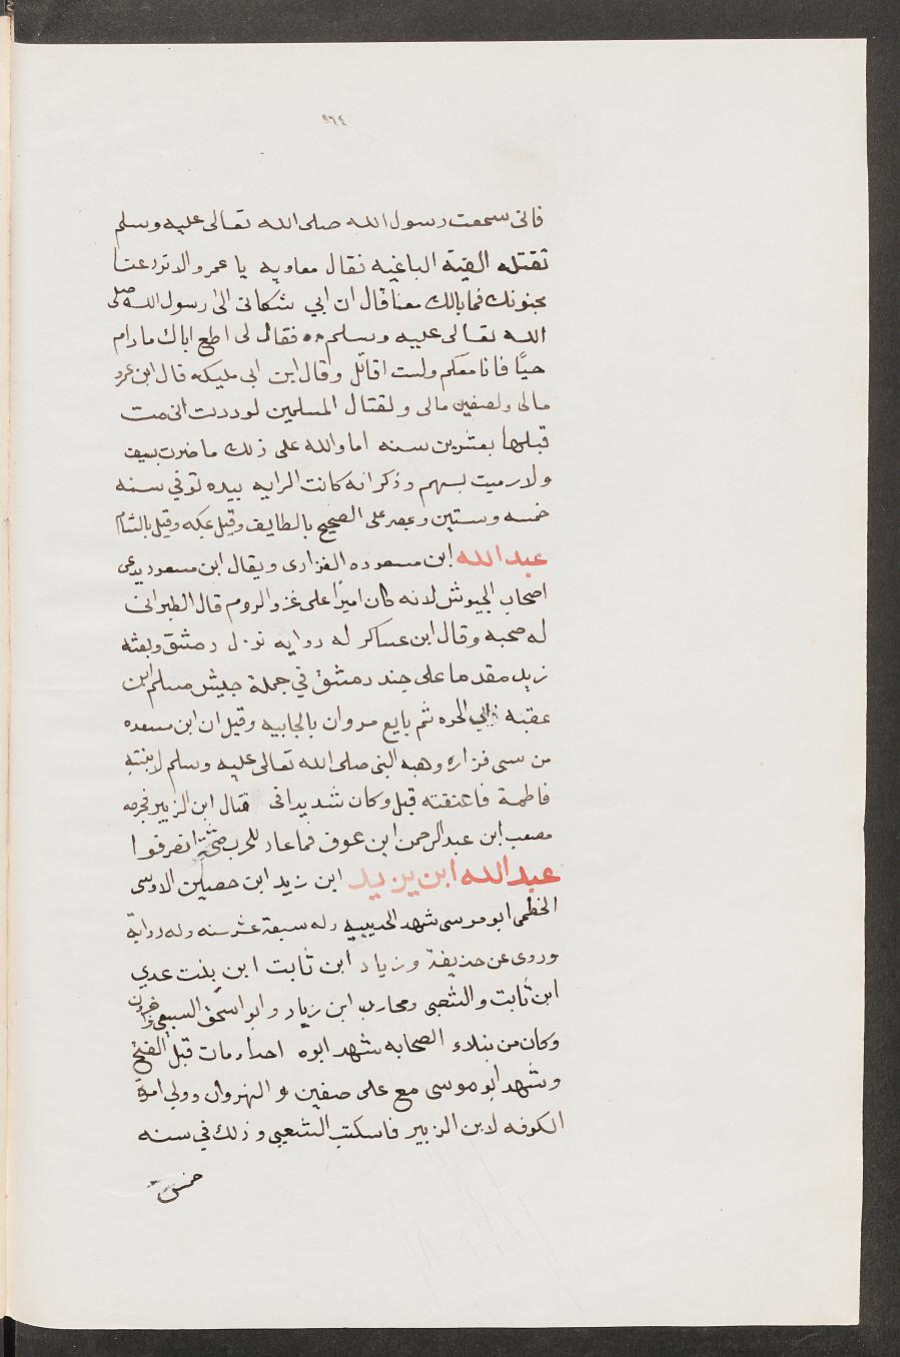 ٩٦٤
فانى سمعت رسول الله صلى الله تعالى عليه وسلم
تقتله الفية الباغيه فقال معاويه يا عمرو الا تردعنا
بجنونك فما بالك معنا قال ان ابي شكانى الى رسول الله صلى
الله تعالى عليه وسلم فقال لى اطع اباك مادام
حيًا فانا معكم ولست اقاتل وقال ابن ابى مليكه قال ابن عمرو
مالى ولصفين مالى ولقتال المسلمين لوددت انى مت
قبلها بعشرين سنه اما والله على ذلك ما ضربت بسيف
ولا رميت بسهم وذكر انه كانت الرايه بيده توفي سنه
خمسه وستين وبمصر على الصحيح بالطايف وقيل بمكه وقيل بالشام
عبد الله ابن مسعوده الفزارى ويقال ابن مسعود يدعى
اصحاب الجيوش لانه كان اميرًا على غزو الروم قال الطبرانى
له صحبه وقال ابن عساكر له روايه نزل دمشق وبعثه
زيد مقدما على جند دمشق في جملة جيش مسلم ابن
عقبه الي الحره ثم بايع مروان بالجابيه وقيل ان ابن مسعده
من سبى فزاره وهبه النبى صلى الله تعالى عليه وسلم لابنته
فاطمة فاعتقته قيل وكان شديدا فى قتال ابن الزبير فجرحه
مصعب ابن عبد الرحمن ابن عوف فما عاد للحرب حتى انصرفوا
عبد الله ابن يزيد ابن زيد ابن حصين الاوسى
الخطمى ابو موسى شهد الحديبيه وله سبعة عشر سنه وله رواية
وروى عن حذيفة وزياد ابن ثابت ابن بنت عدي
ابن ثابت والشعبى ومحارب ابن زياد وابو اسحق السبيعى واخرون
وكان من نبلاء الصحابه شهد ابوه احدا ومات قبل الفتح
وشهد ابو موسى مع على صفين و النهروان وولي امرة
الكوفه لابن الزبير فاسكتب الشعبى وذلك في سنه